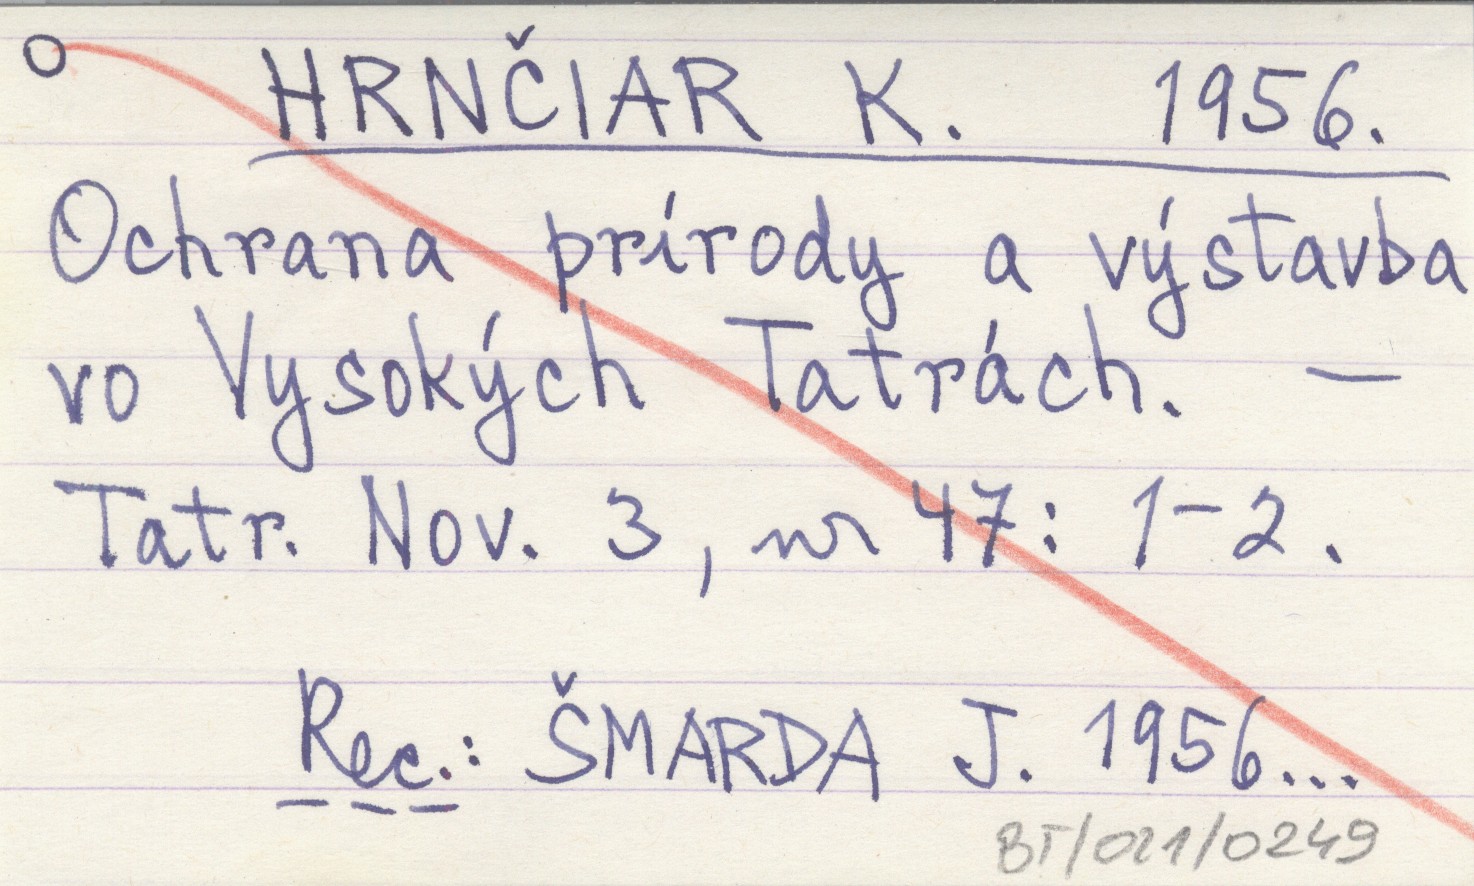 O HRNČIAR K. 1956.
Ochrana prírody a výstavba
vo Vysokých Tatrách. —
Tatr. Nov. 3, nr 47: 1-2.
Rec.: ŠMARDA J. 1956...
BT/021/0249